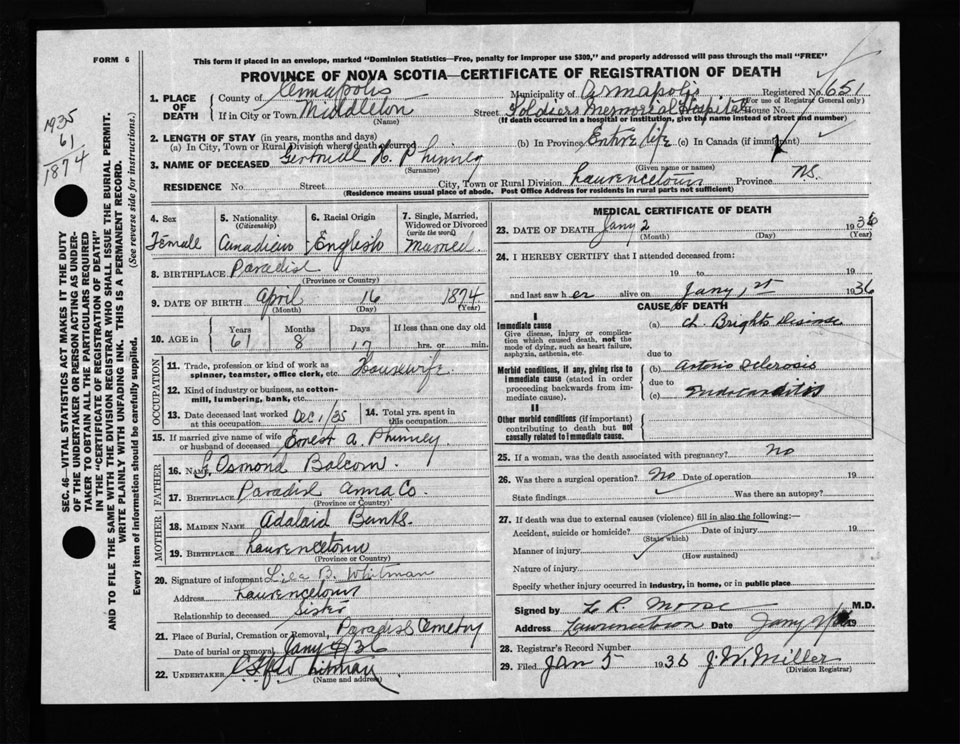 FORM 6
This form if placed in an envelope, marked "Dominion Statistics—Free, penalty for improper use $300," and properly addressed will pass through the mail "FREE"
PROVINCE OF NOVA SCOTIA—CERTIFICATE OF REGISTRATION OF DEATH
1935
61
1874
SEC. 46—VITAL STATISTICS ACT MAKES IT THE DUTY
OF THE UNDERTAKER OR PERSON ACTING AS UNDER-
TAKER TO OBTAIN ALL THE PARTICULARS REQUIRED
IN THE "CERTIFICATE OF REGISTRATION OF DEATH"
AND TO FILE THE SAME WITH THE DIVISION REGISTRAR WHO SHALL ISSUE THE BURIAL PERMIT.
WRITE PLAINLY WITH UNFADING INK. THIS IS A PERMANENT RECORD.
Every item of Information should be carefully supplied. (See reverse side for instructions.)
1. PLACE OF DEATH
County of Annapolis Municipality of Annapolis Registered No. 651
(For use of Registrar General only)
If in City or Town Middleton Street Soldiers Memorial Hospital House No.
(Name) (If death occurred in a hospital or institution, give the name instead of street and number)
2. LENGTH OF STAY (in years, months and days)
(a) In City, Town or Rural Division where death occurred (b) In Province Entire life (c) In Canada (if immigrant)
3. NAME OF DECEASED Gertrude H. Phinney
(Surname) (Given name or names)
RESIDENCE No. Street City, Town or Rural Division Laurencetown Province N.S.
(Residence means usual place of abode. Post Office Address for residents in rural parts not sufficient)
4. Sex Female
5. Nationality (Citizenship) Canadian
6. Racial Origin English
7. Single, Married, Widowed or Divorced (write the word) Married
8. BIRTHPLACE Paradise
(Province or Country)
9. DATE OF BIRTH April 16 1874
(Month) (Day) (Year)
10. AGE in Years 61 Months 8 Days 17 If less than one day old hrs. or min.
OCCUPATION
11. Trade, profession or kind of work as spinner, teamster, office clerk, etc. Housewife
12. Kind of industry or business, as cotton-mill, lumbering, bank, etc.
13. Date deceased last worked at this occupation Dec 1/35 14. Total yrs. spent in this occupation
15. If married give name of wife or husband of deceased Ernest A. Phinney
FATHER
16. Name Osmond Balcom.
17. Birthplace Paradise Anna Co.
(Province or Country)
MOTHER
18. Maiden Name Adalaid Bunks.
19. Birthplace Laurencetown
(Province or Country)
20. Signature of informant Lila B. Whitman
Address Laurencetown
Relationship to deceased Sister
21. Place of Burial, Cremation or Removal, Paradise Cemetry
Date of burial or removal Jany 4/36
22. UNDERTAKER Whitman
(Name and address)
MEDICAL CERTIFICATE OF DEATH
23. DATE OF DEATH Jany 2 1936
(Month) (Day) (Year)
24. I HEREBY CERTIFY that I attended deceased from:
19 to 19
and last saw her alive on Jany 1st 1936
CAUSE OF DEATH
I
Immediate cause
Give disease, injury or complication which caused death, not the mode of dying, such as heart failure, asphyxia, asthenia, etc.
(a) Ch. Brights Disease
due to
Morbid conditions, if any, giving rise to immediate cause (stated in order proceeding backwards from immediate cause).
(b) Arterio Sclerosis
due to
(c) Endocarditis
II
Other morbid conditions (if important) contributing to death but not causally related to I immediate cause.
25. If a woman, was the death associated with pregnancy? No
26. Was there a surgical operation? No Date of operation 19
State findings Was there an autopsy?
27. If death was due to external causes (violence) fill in also the following:—
Accident, suicide or homicide? Date of injury 19
(State which)
Manner of injury
(How sustained)
Nature of injury
Specify whether injury occurred in industry, in home, or in public place
Signed by L R. Morse M.D.
Address Lawrencetown Date Jany 19
28. Registrar's Record Number
29. Filed Jan 5 1936 J. W. Miller
(Division Registrar)